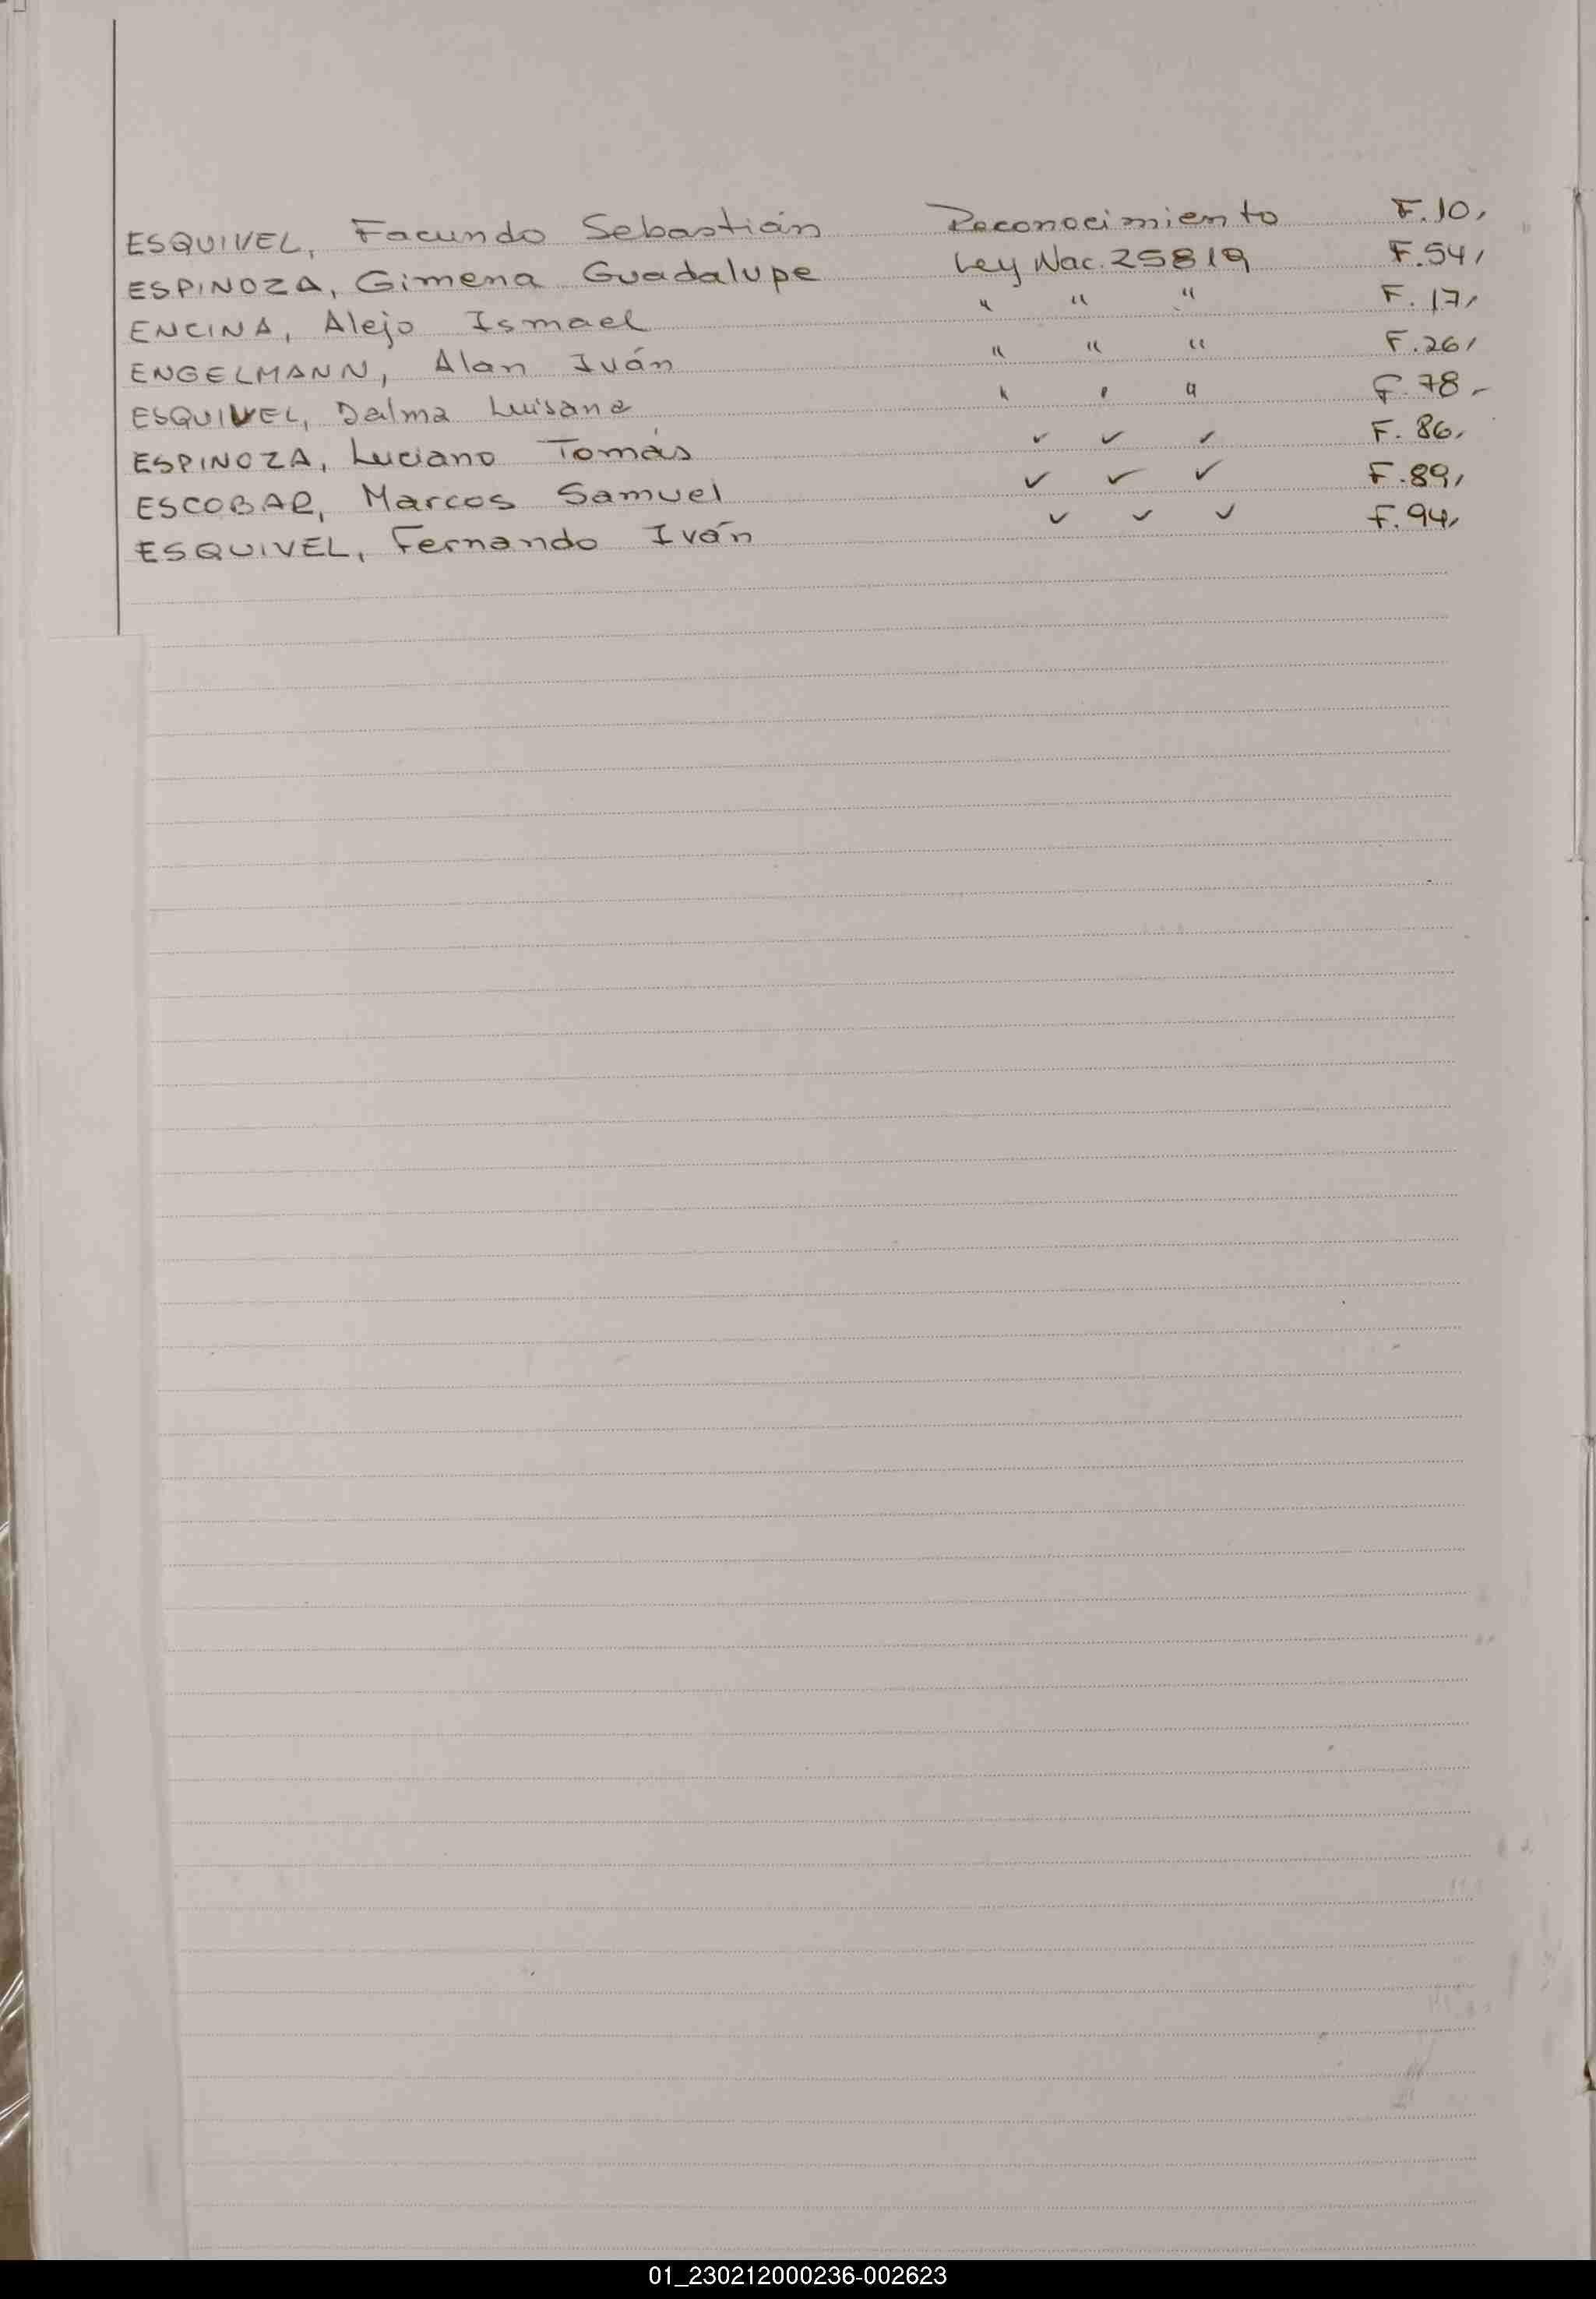 ESQUIVEL, Facundo Sebastián Reconocimiento F.10,
ESPINOZA, Gimena Guadalupe Ley Nac. 25819 F.54,
ENCINA, Alejo Ismael " " " F.17,
ENGELMANN, Alan Iván " " " F.26,
ESQUIVEL, Dalma Luisana " " " F.78-
ESPINOZA, Luciano Tomás ✓ ✓ ✓ F.86,
ESCOBAR, Marcos Samuel ✓ ✓ ✓ F.89,
ESQUIVEL, Fernando Iván ✓ ✓ ✓ F.94,
01_230212000236-002623